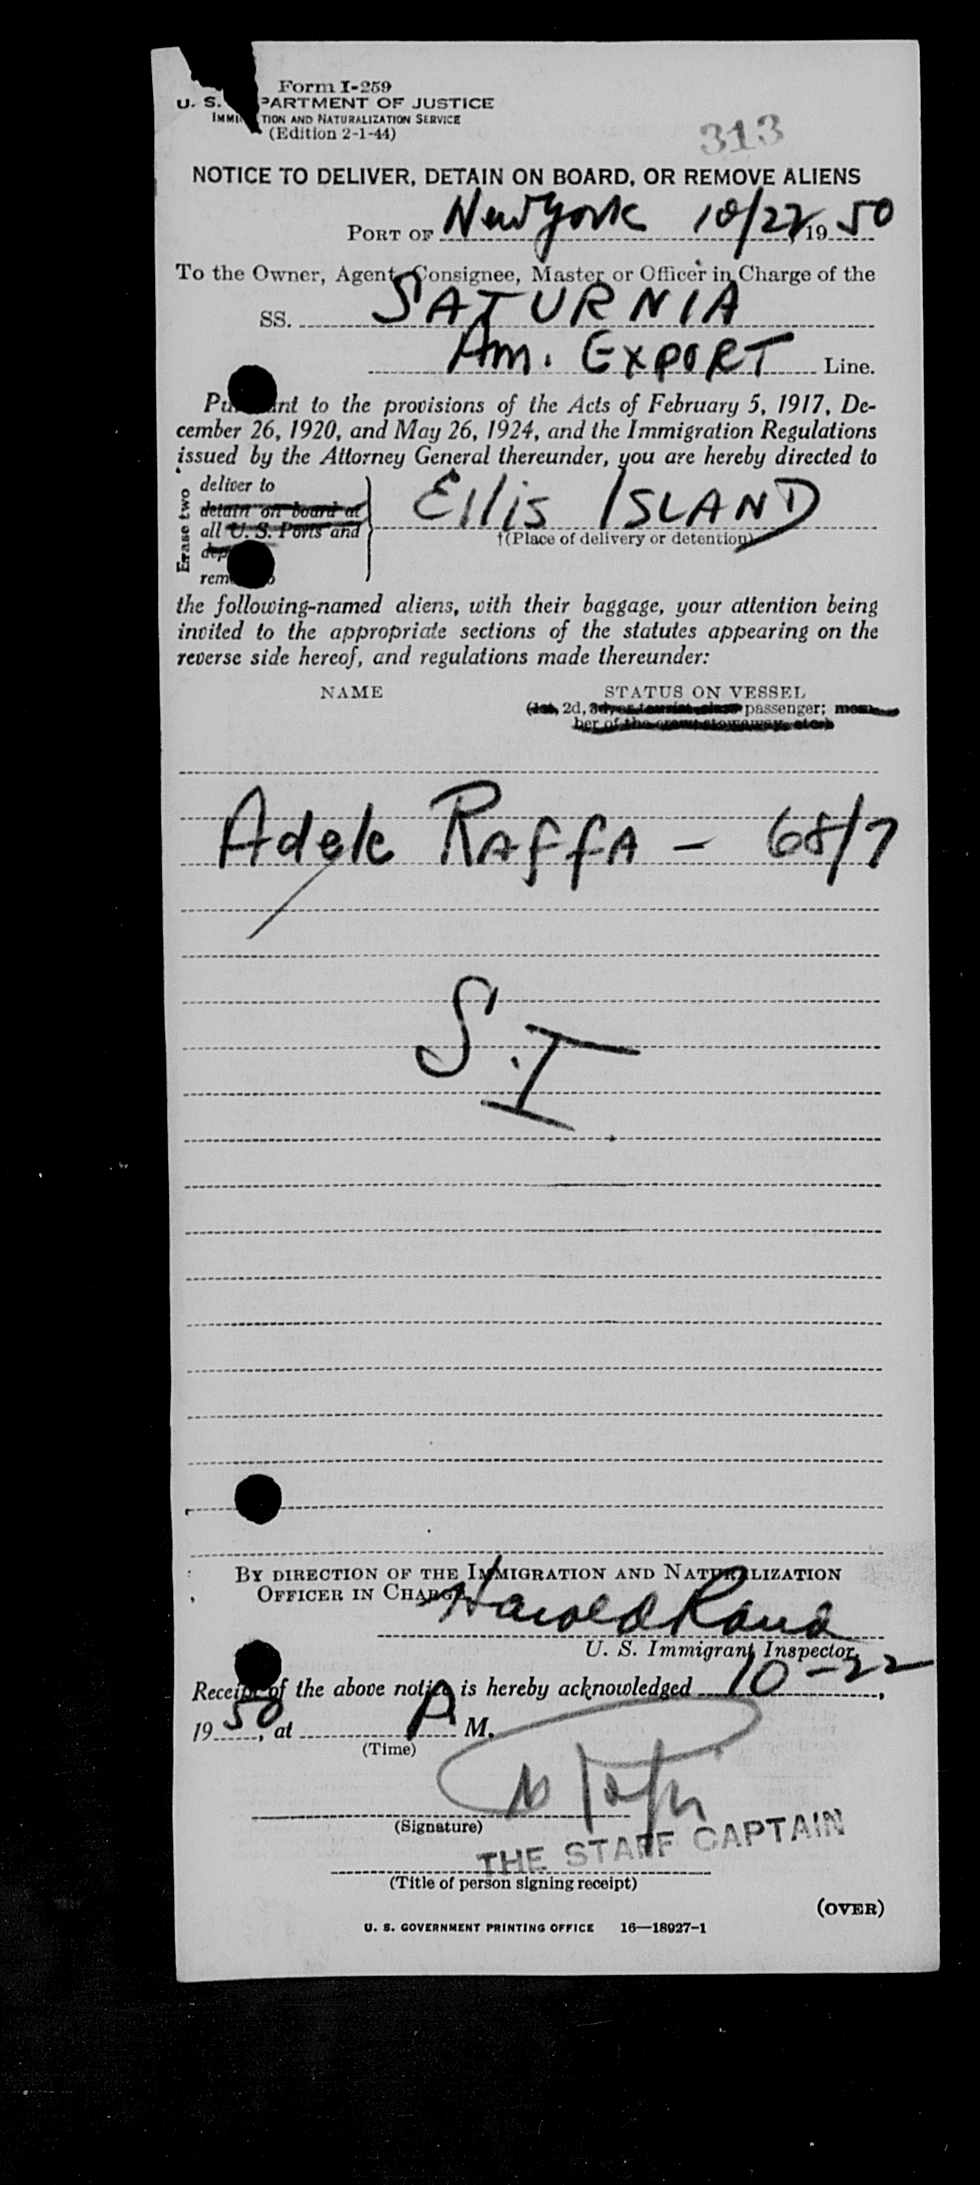 Form I-259
U. S. PARTMENT OF JUSTICE
IMMI TION AND NATURALIZATION SERVICE
(Edition 2-1-44)
313
NOTICE TO DELIVER, DETAIN ON BOARD, OR REMOVE ALIENS
PORT OF New York 10/22, 19 50
To the Owner, Agent, Consignee, Master or Officer in Charge of the
SS. SATURNIA
Am. EXPORT Line.
Pu nt to the provisions of the Acts of February 5, 1917, De-
cember 26, 1920, and May 26, 1924, and the Immigration Regulations
issued by the Attorney General thereunder, you are hereby directed to
Erase two
deliver to
detain on board at
all U. S. Ports and
dep
rem o
Ellis ISLAND
†(Place of delivery or detention)
the following-named aliens, with their baggage, your attention being
invited to the appropriate sections of the statutes appearing on the
reverse side hereof, and regulations made thereunder:
NAME STATUS ON VESSEL
(1st, 2d, 3d, or tourist class passenger; mem-
ber of the crew, stowaway, etc.)
Adele RAffA - 68/7
S.I
BY DIRECTION OF THE IMMIGRATION AND NATURALIZATION
OFFICER IN CHARGE
Harold Rand
U. S. Immigrant Inspector.
Receipt of the above notice is hereby acknowledged 10-22,
19 50, at P. M.
(Time)
(Signature)
THE STAFF CAPTAIN
(Title of person signing receipt)
(OVER)
U. S. GOVERNMENT PRINTING OFFICE 16—18927-1